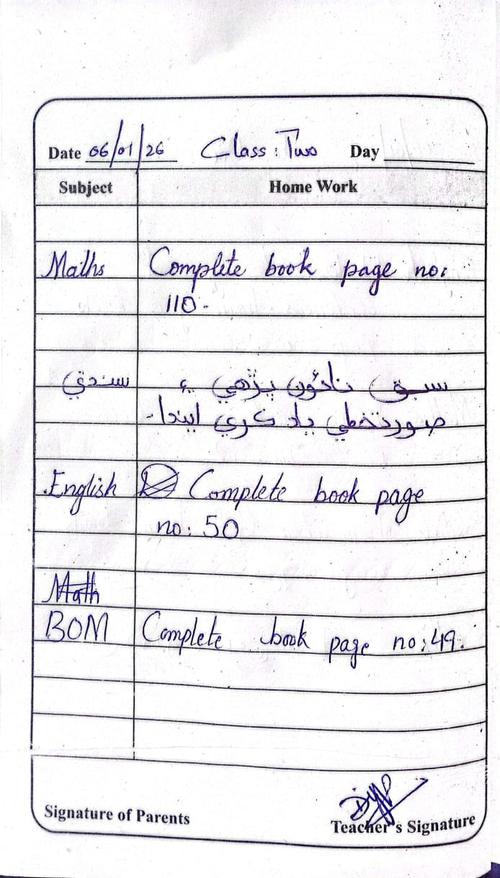 Date 06/01/26 Class: Two Day
Subject Home Work
Maths Complete book page no:
110.
سنڌي سبق نائون پڙهي ۽
صورتخطي ياد ڪري ايندا۔
English Complete book page
no: 50
Math
BOM Complete book page no; 49.
Signature of Parents Teacher's Signature